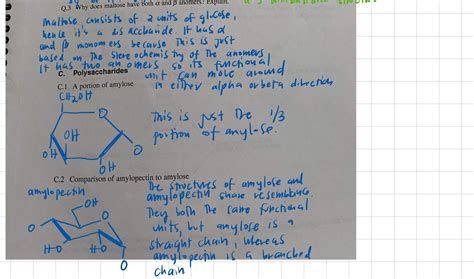 Q.3 Why does maltose have both α and β anomers? Explain.
maltose, consists of 2 units of glucose,
hence it's a disaccharide. It has α
and β monomers because this is just
based on the stereochemistry of the anomers
It has two anomers so its functional
unit can move around
in either alpha or beta direction
C. Polysaccharides
C.1 A portion of amylose
CH2OH
O
OH
OH
OH
O
This is just the 1/3
portion of amylose.
C.2 Comparison of amylopectin to amylose
amylopectin
OH
HO
HO
O
OH
O
The structures of amylose and
amylopectin share resembling.
They both the same functional
units, but amylose is a
straight chain, whereas
amylopectin is a branched
chain